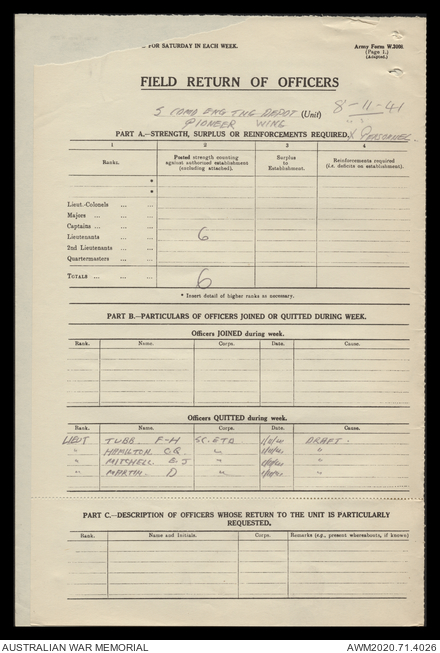 FOR SATURDAY IN EACH WEEK.
Army Form W.3008
(Page 1.)
(Adapted.)
FIELD RETURN OF OFFICERS
5 COMD ENG TNG DEPOT (Unit) 8-11-41
PIONEER WING
PART A.—STRENGTH, SURPLUS OR REINFORCEMENTS REQUIRED. X PERSONNEL.
1 2 3 4
Ranks. Posted strength counting against authorized establishment (excluding attached). Surplus to Establishment. Reinforcements required (i.e. deficits on establishment).
*
*
Lieut.-Colonels ... ...
Majors ... ...
Captains ... ... ...
Lieutenants ... ... 6
2nd Lieutenants ... ...
Quartermasters ... ...
TOTALS ... ... ... 6
* Insert detail of higher ranks as necessary.
PART B.—PARTICULARS OF OFFICERS JOINED OR QUITTED DURING WEEK.
Officers JOINED during week.
Rank. Name. Corps. Date. Cause.
Officers QUITTED during week.
Rank. Name. Corps. Date. Cause.
LIEUT TUBB. F-H DRAFT.
" HAMILTON " "
" MITCHELL E.J " "
" MARTIN. D " "
PART C.—DESCRIPTION OF OFFICERS WHOSE RETURN TO THE UNIT IS PARTICULARLY
REQUESTED.
Rank. Name and Initials. Corps. Remarks (e.g., present whereabouts, if known)
AUSTRALIAN WAR MEMORIAL AWM2020.71.4026